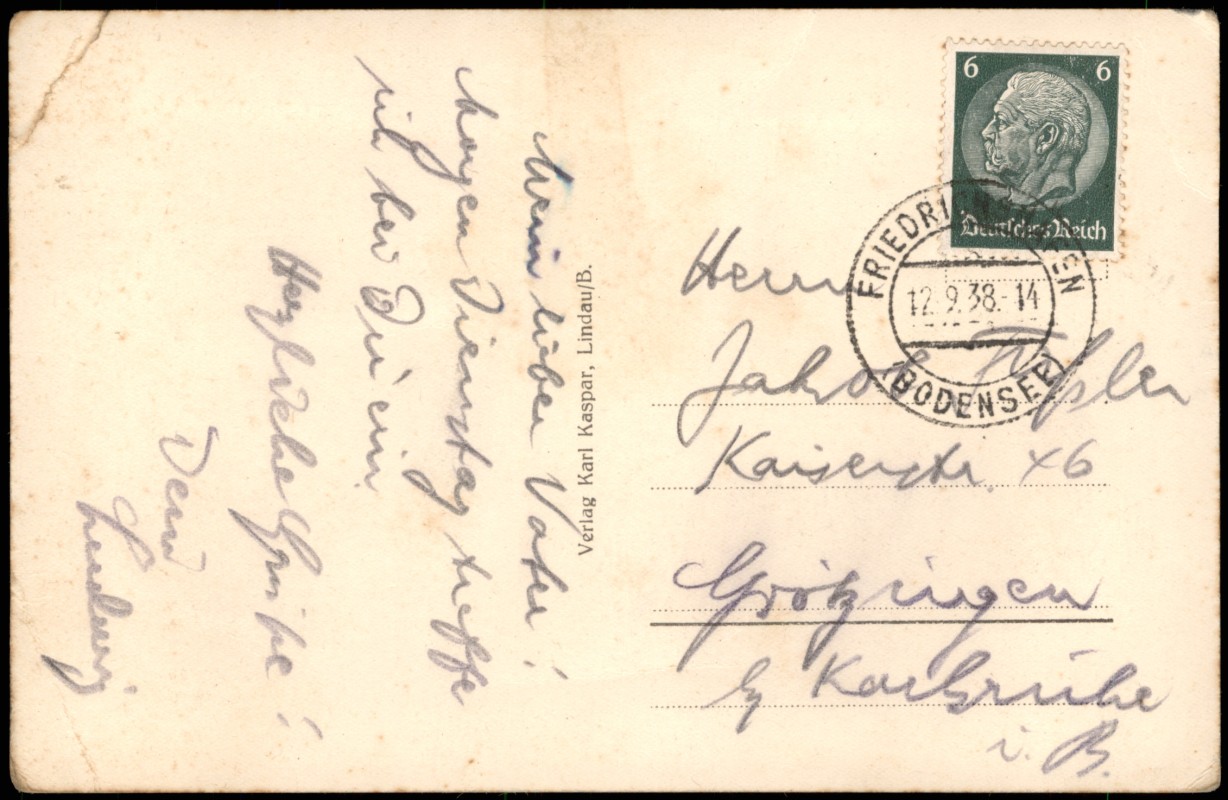 Mein lieber Vater!
Morgen Dienstag treffe
ich bei Dir ein.
Herzliche Grüße!
Dein
Ludwig
Verlag Karl Kaspar, Lindau/B.
6 6
Deutsches Reich
FRIEDRICHSHAFEN
12.9.38.-14
(BODENSEE)
Herrn
Jakob
Kaiserstr. 46
Grötzingen
b/ Karlsruhe
i. B.